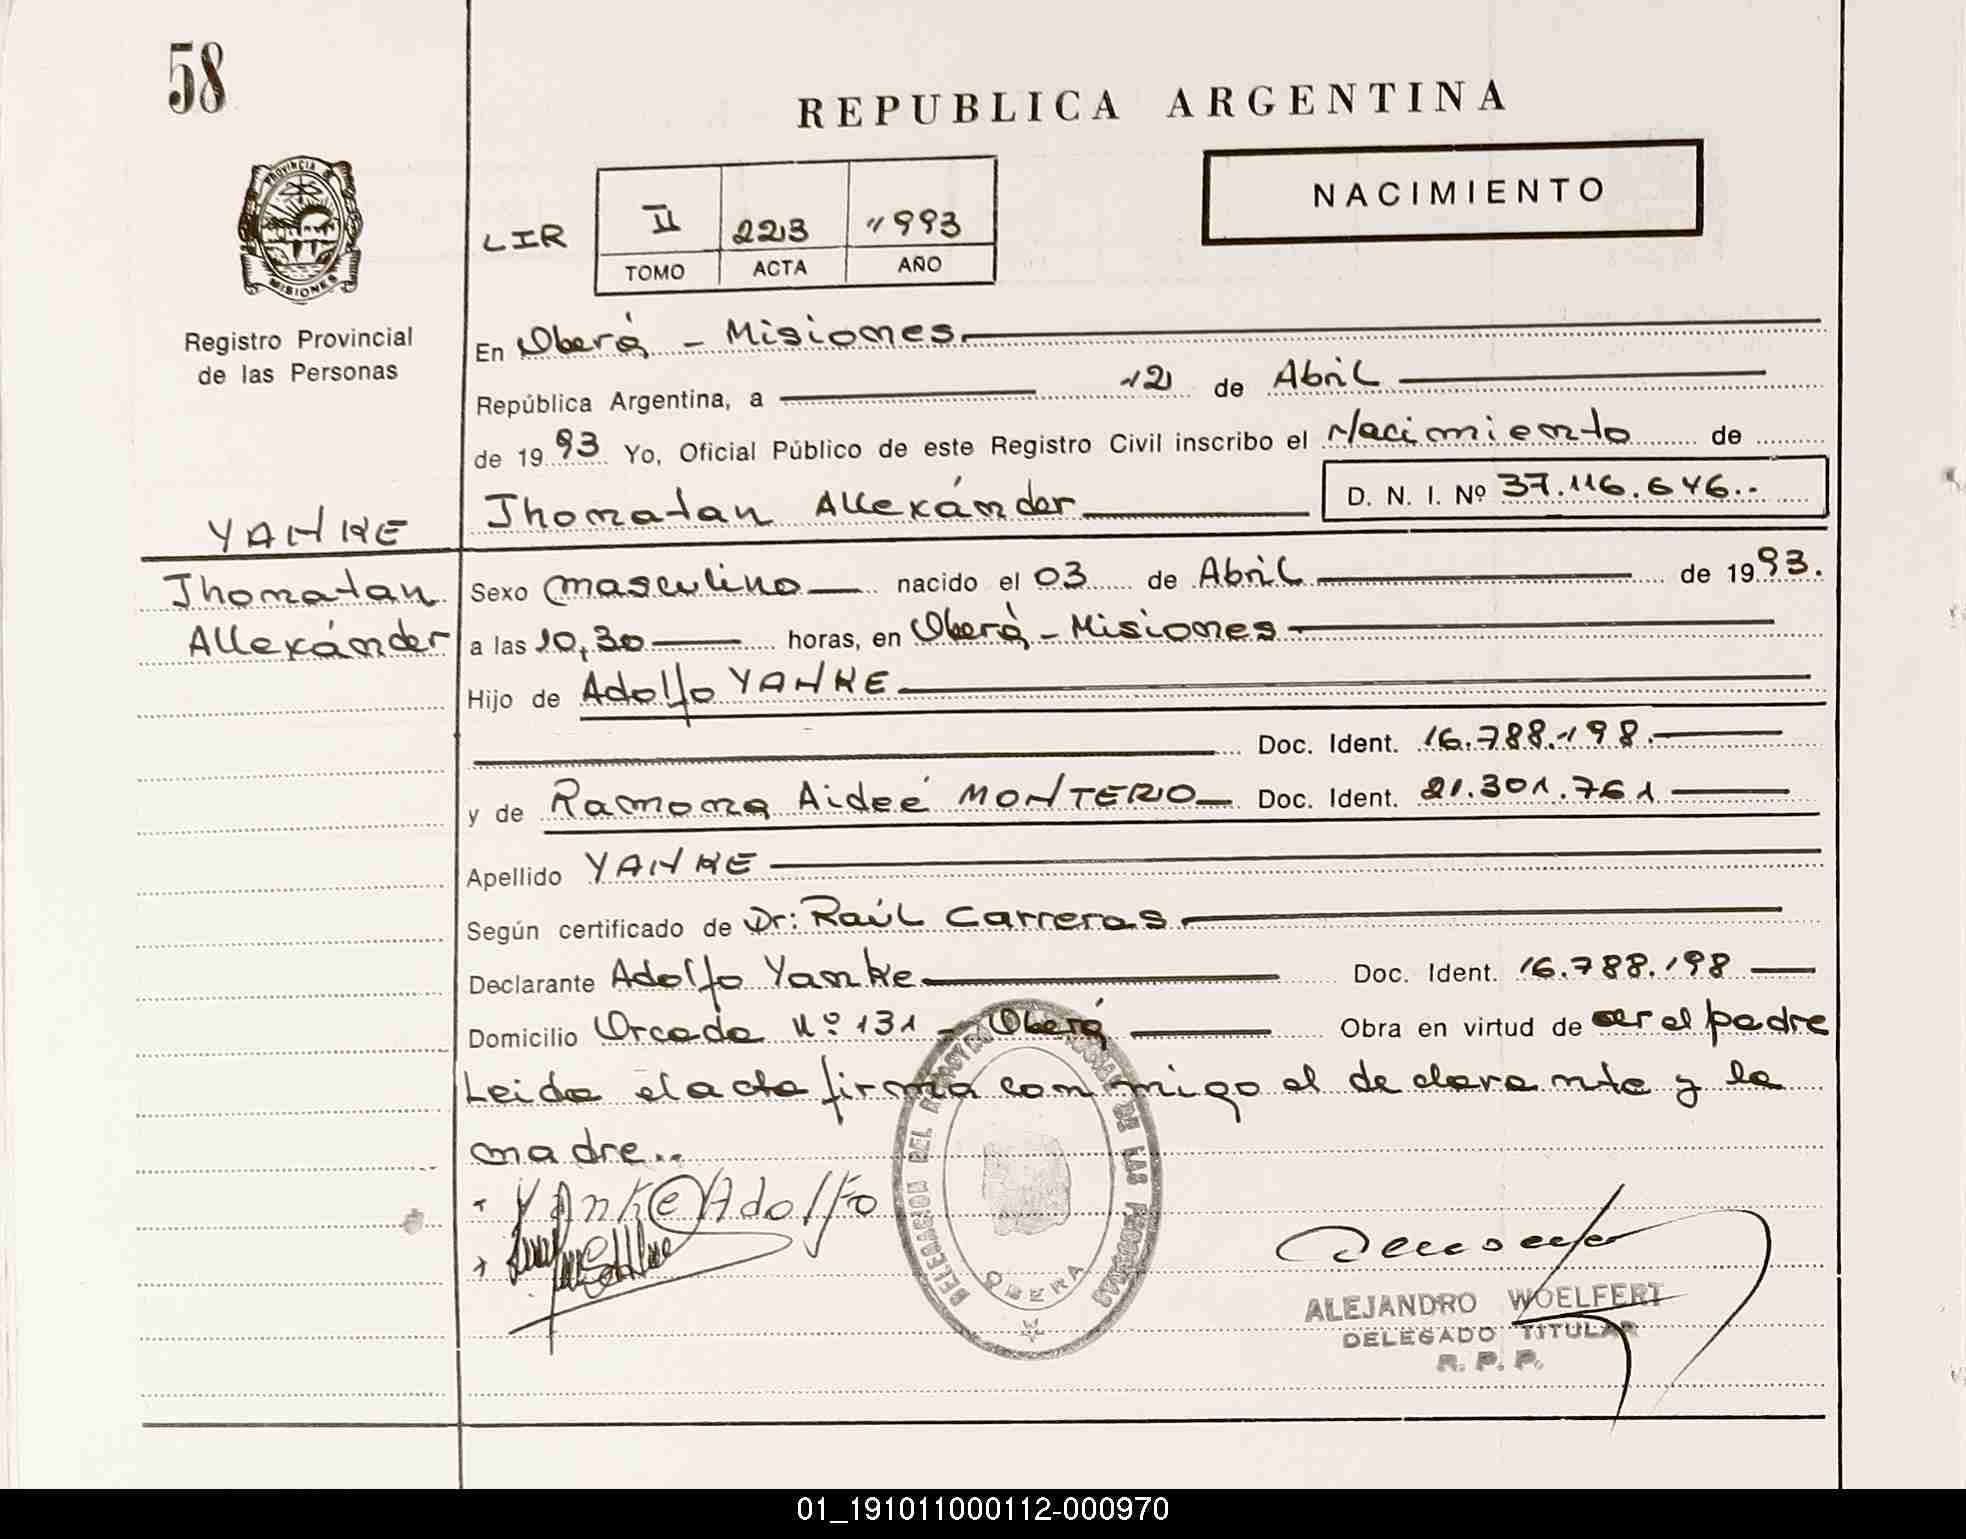 58
REPUBLICA ARGENTINA
PROVINCIA DE MISIONES
NACIMIENTO
LIR II 223 1993
TOMO ACTA AÑO
Registro Provincial
de las Personas
En Oberá - Misiones
República Argentina, a 12 de Abril
de 1993 Yo, Oficial Público de este Registro Civil inscribo el Nacimiento de
Jhonatan Allexánder D. N. I. Nº 37.116.646.-
YANKE
Jhonatan
Allexánder
Sexo masculino nacido el 03 de Abril de 1993.
a las 10,30 horas, en Oberá - Misiones
Hijo de Adolfo YANKE
Doc. Ident. 16.788.198.
y de Ramona Aideé MONTERIO Doc. Ident. 21.301.761
Apellido YANKE
Según certificado de Dr: Raúl Carreras
Declarante Adolfo Yanke Doc. Ident. 16.788.198
Domicilio Orcada Nº 131 - Oberá Obra en virtud de ser el padre
Leida el acta firma conmigo el declarante y la
madre..
Yanke Adolfo
DELEGACION DEL REGISTRO PROVINCIAL DE LAS PERSONAS
OBERA
ALEJANDRO WOELFERT
DELEGADO TITULAR
R. P. P.
01_191011000112-000970